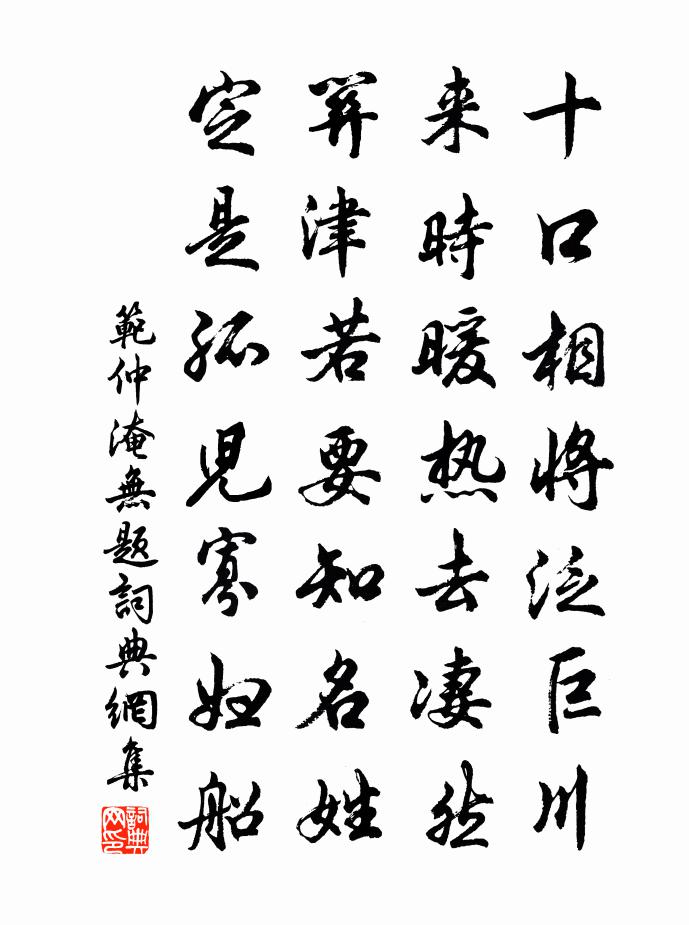 十口相將泛巨川
来時暖热去凄然
關津若要知名姓
定是孤兒寡婦船
範仲淹無題詞典網集
詞典网印